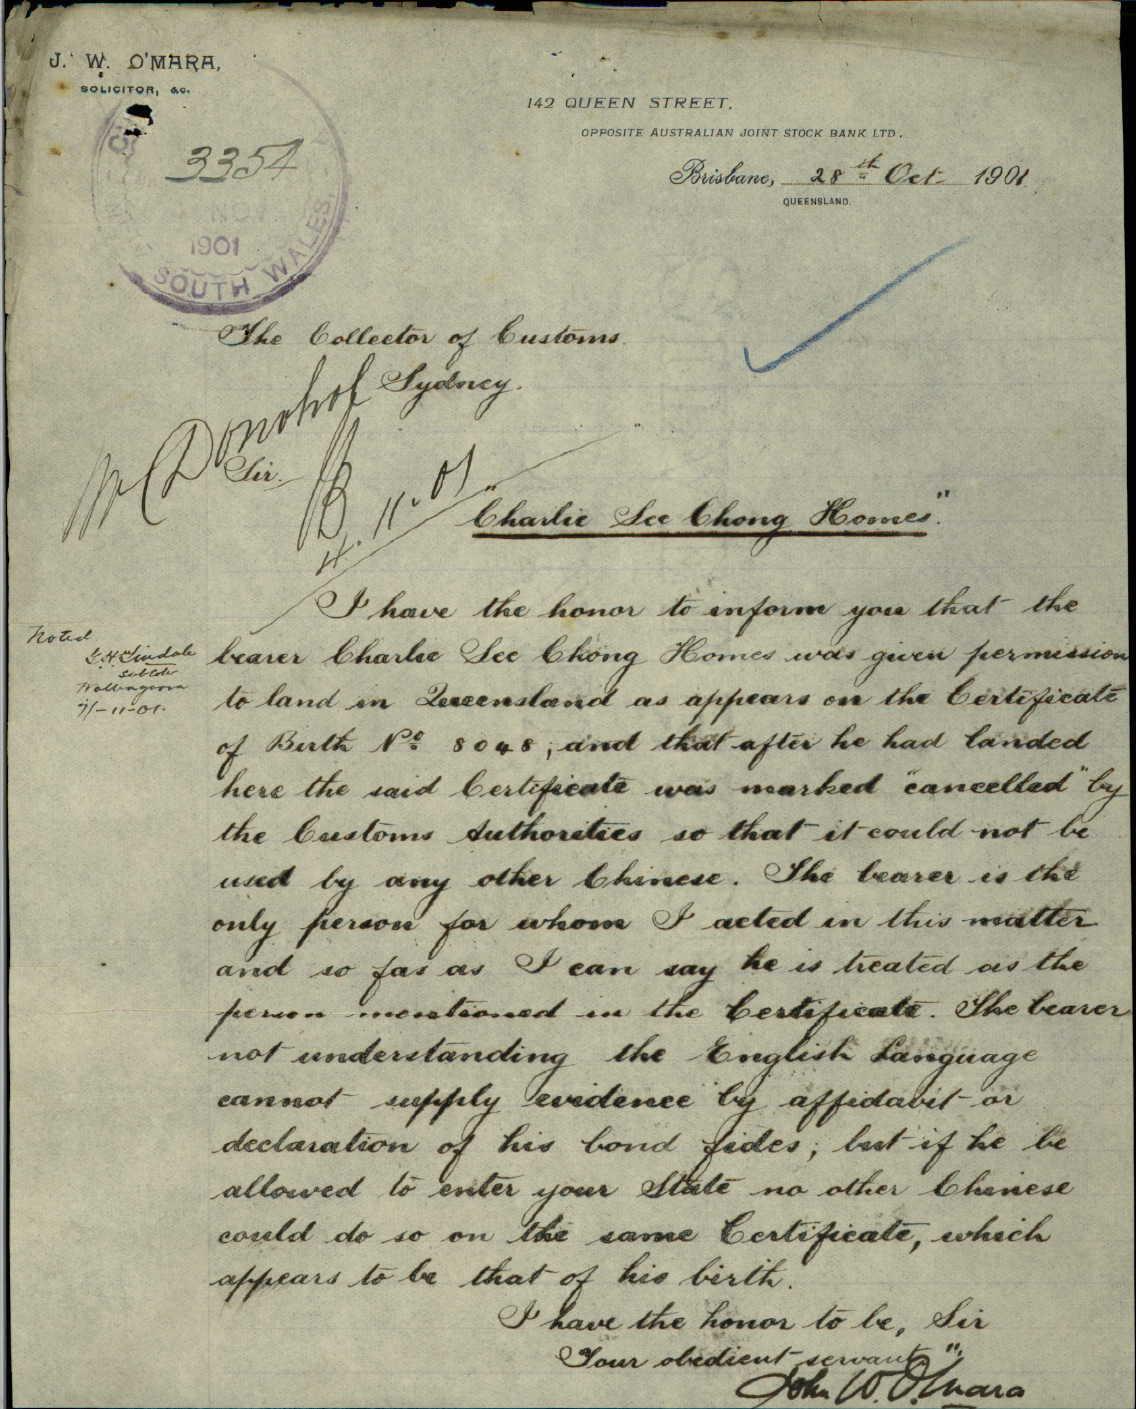 J. W. O'MARA,
SOLICITOR, &c.
142 QUEEN STREET,
OPPOSITE AUSTRALIAN JOINT STOCK BANK LTD.
3354
Brisbane, 28th Oct 1901
QUEENSLAND.
NOV
1901
SOUTH WALES
The Collector of Customs
Sydney.
Mr Donohoe
Sir.
4.11.01
"Charlie See Chong Homes".
I have the honor to inform you that the
Noted
bearer Charlie See Chong Homes was given permission
to land in Queensland as appears on the Certificate
Wallangarra
-11-01.
of Birth No. 8048, and that after he had landed
here the said Certificate was marked "cancelled" by
the Customs Authorities so that it could not be
used by any other Chinese. The bearer is the
only person for whom I acted in this matter
and so far as I can say he is treated as the
person mentioned in the Certificate. The bearer
not understanding the English Language
cannot supply evidence by affidavit or
declaration of his bond fides; but if he be
allowed to enter your State no other Chinese
could do so on the same Certificate, which
appears to be that of his birth.
I have the honor to be, Sir
Your obedient servant,
John W. O'Mara